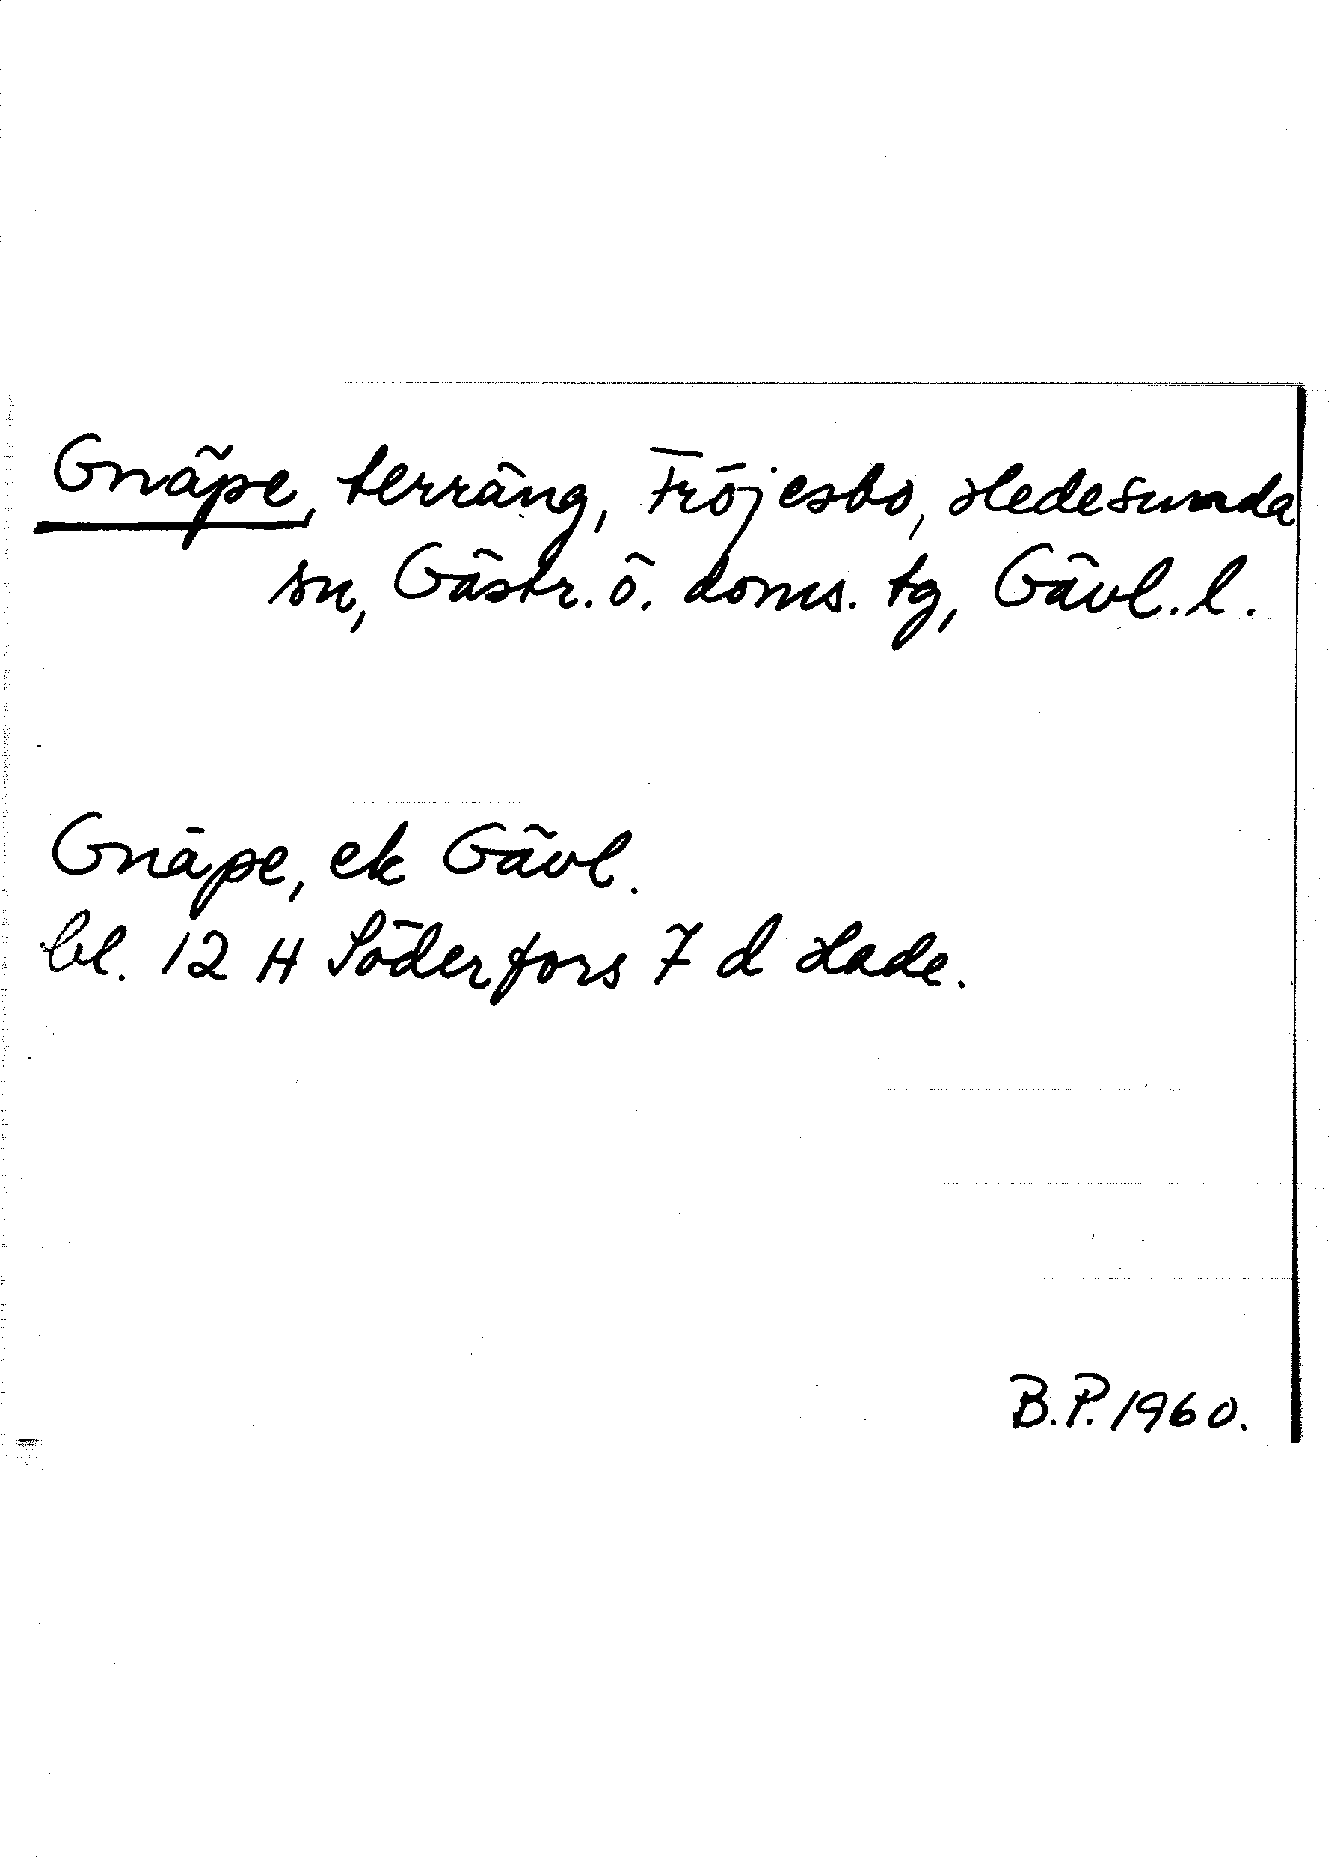 Gnäpe, terräng, Fröjesbo, Hedesunda
sn, Gästr. ö. doms. tg, Gävl. l.
Gnäpe, ek Gävl.
bl. 12 H Söderfors 7 d Hade.
B.P. 1960.